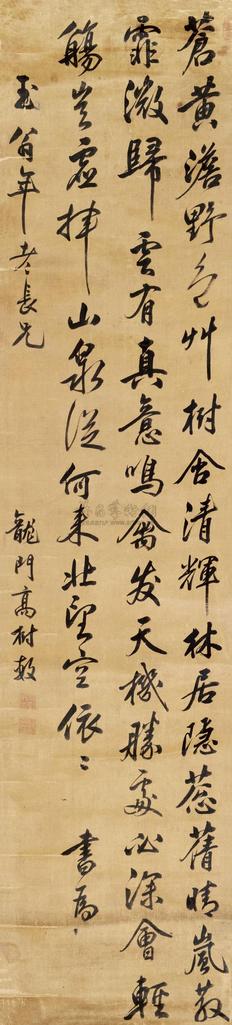 蒼黃澹野色草樹含清輝林居隱蔥蒨晴嵐散
霏微歸雲有真意鳴禽發天機勝處必深會輕
觴豈虛揮山泉從何來壯望空依〻書爲
玉翁年老長兄
龍門高樹敬